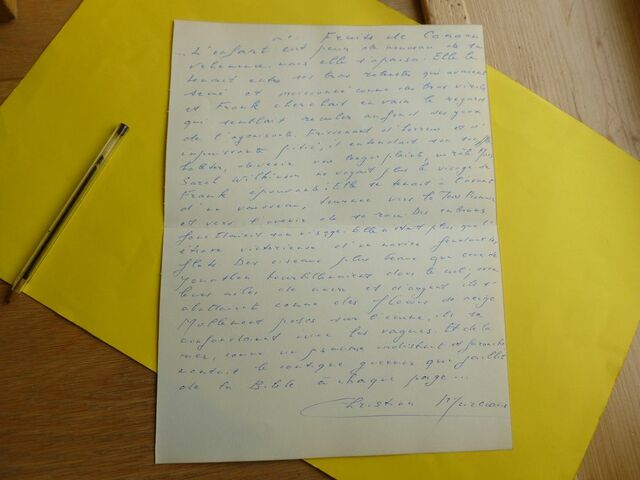 Fruits de Canaan
... L'enfant eut peur de nouveau de sa
véhémence mais elle s'apaisa. Elle le
tenait entre ses bras robustes qui avaient
semé et moissonné comme des bras virils
et Frank cherchait en vain le regard
qui semblait reculer au fond des yeux
de l'agonisante. Frissonnant d'horreur et d'
impuissante pitié, il entendait son souffle
haleter, devenir une longue plainte,
Sarah Wilkinson ne voyait plus le visage de
Frank épouvanté. Elle se tenait à l'avant
d'un vaisseau, tournée vers la Terre Promise
et vers l'avenir de sa race. Des embruns
fouettaient son visage. Elle n'était plus que l'
étrave victorieuse d'un navire fendant les
flots. Des oiseaux plus beaux que ceux de
Jonathan tourbillonnaient dans le ciel, avec
leurs ailes de nacre et d'argent ils s'
abattaient comme des flocons de neige
Mollement posés sur l'écume, ils se
confondaient avec les vagues. Et de la
mer, comme un psaume indistinct et farouche
montait le cantique guerrier qui jaillit
de la Bible à chaque page ...
Christian Murciaux